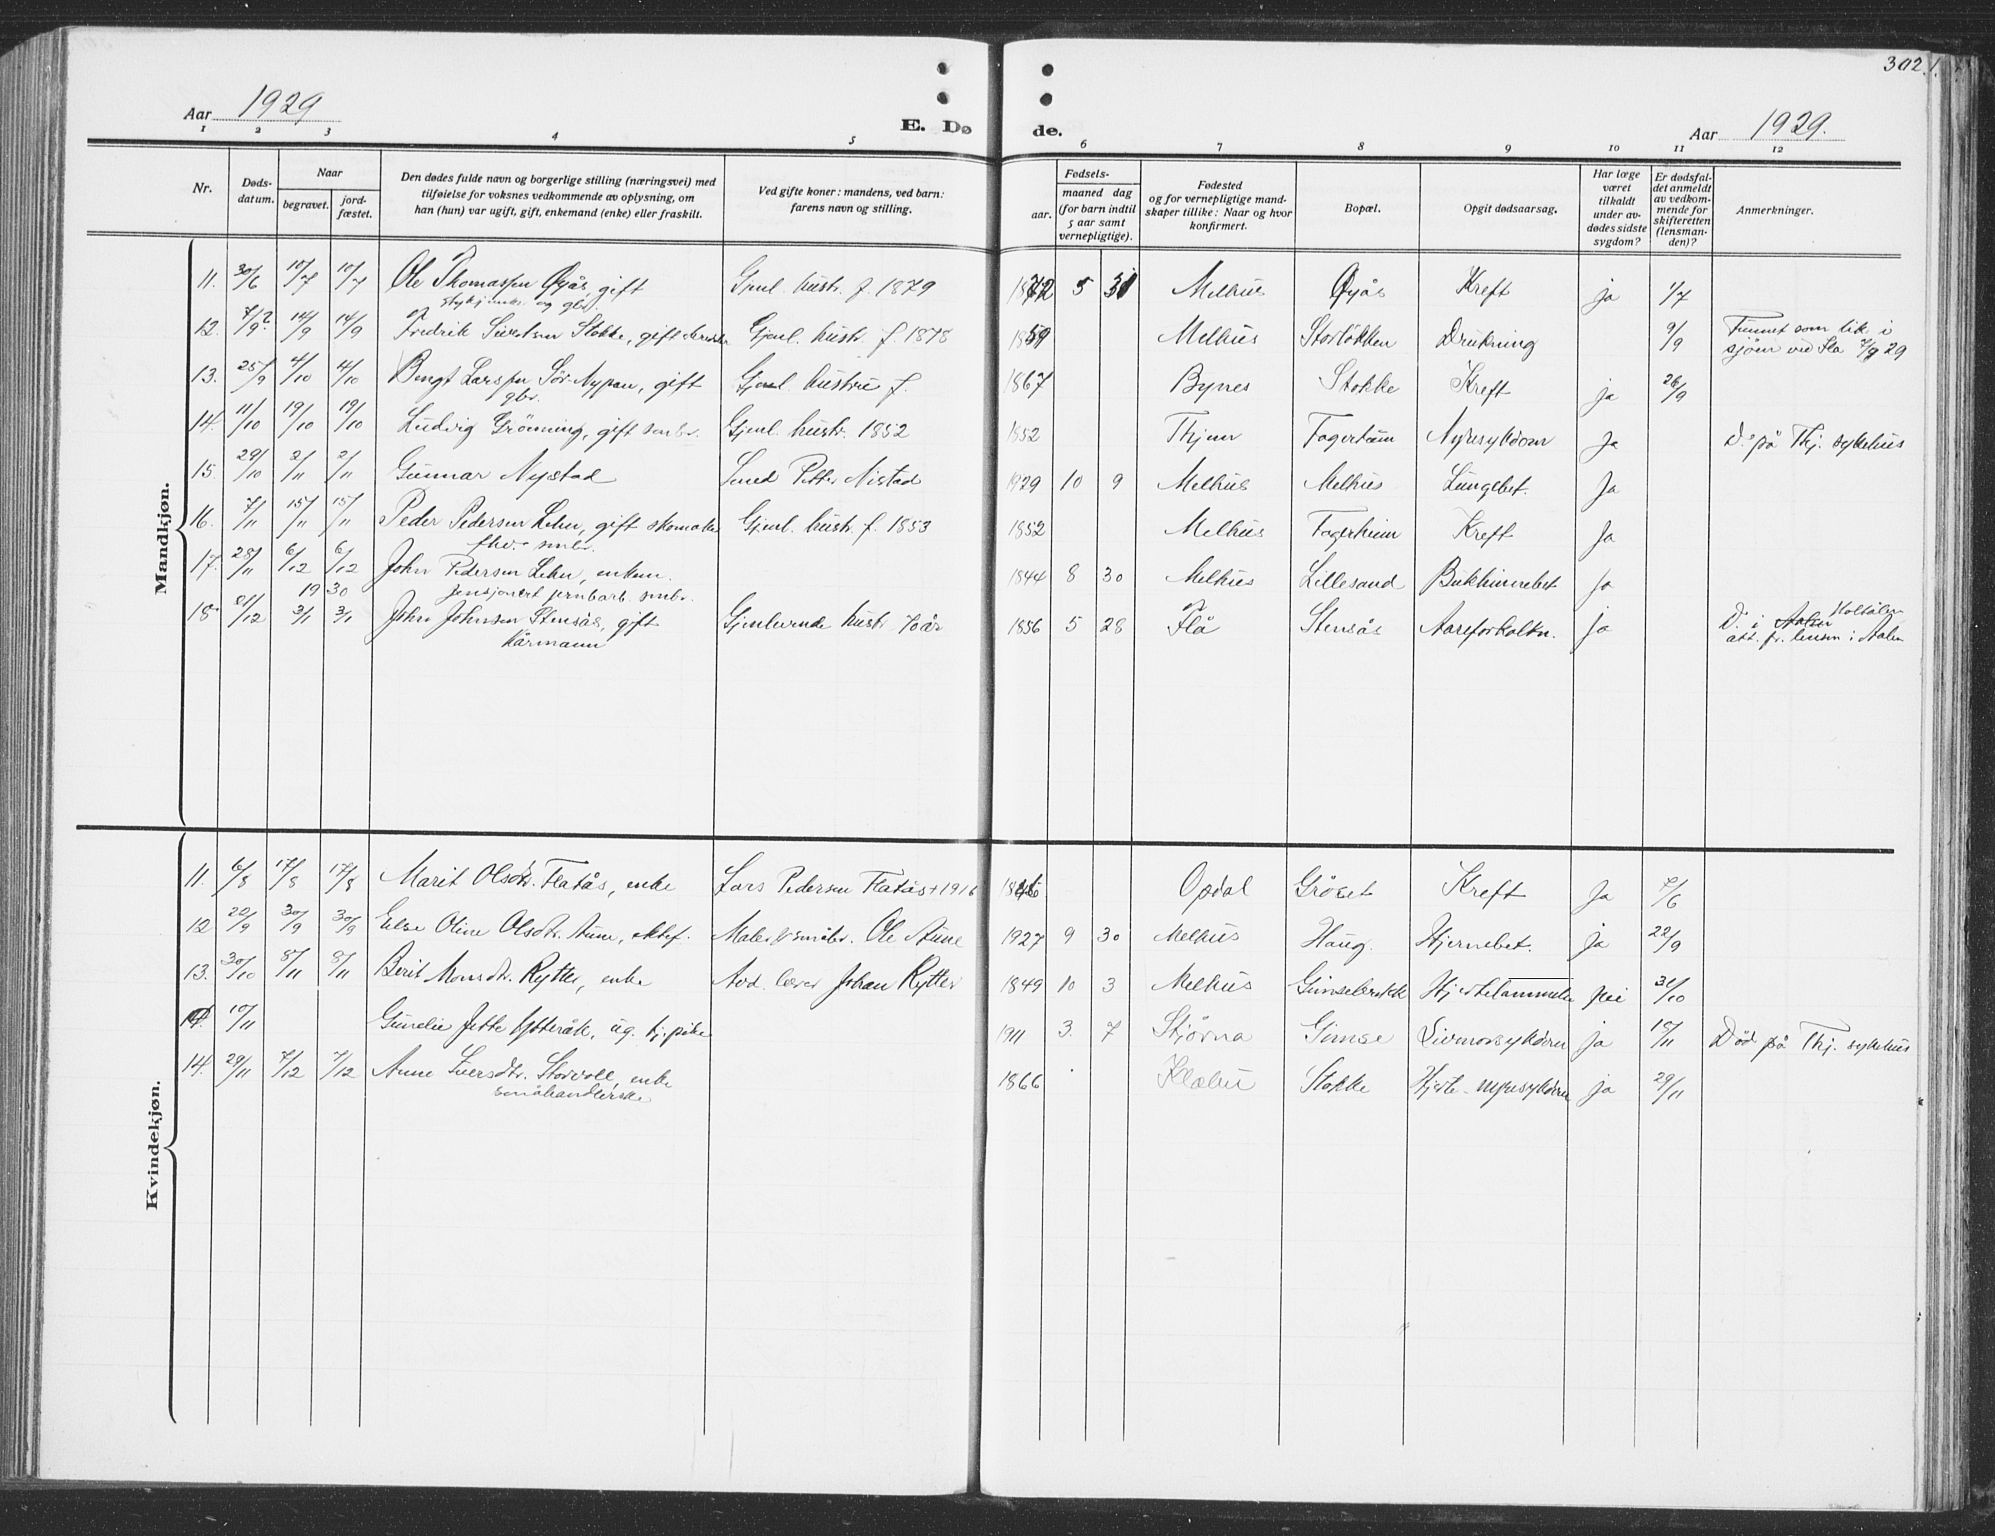 302.
Aar 1929
E. Døde.
Aar 1929.
1 2 3 4 5 6 7 8 9 10 11 12
Nr.
Døds-datum.
Naar
begravet.
jord-fæstet.
Den dødes fulde navn og borgerlige stilling (næringsvei) med
tilføielse for voksnes vedkommende av oplysning, om
han (hun) var ugift, gift, enkemand (enke) eller fraskilt.
Ved gifte koner: mandens, ved barn:
farens navn og stilling.
Fødsels-
aar.
maaned dag
(for barn indtil
5 aar samt
vernepligtige).
Fødested
og for vernepligtige mand-
skaper tillike: Naar og hvor
konfirmert.
Bopæl.
Opgit dødsaarsag.
Har læge
været
tilkaldt
under av-
dødes sidste
sygdom?
Er dødsfal-
det anmeldt
av vedkom-
mende for
skifteretten
(lensman-
den)?
Anmerkninger.
Mandkjøn.
11. 30/6 10/7 10/7 Ole Thomassen Øyås, gift Gjenl. hustr. f. 1879 5 31 Melhus Øyås Kreft ja 1/7
og gbr.
12. 7/9? 14/9 14/9 Fredrik Sivertsen Stokke, gift Gjenl. hustr. f. 1878 1859 Melhus Storløkken Drukning 9/9 Funnet som lik i
sjøen ved Ila 7/9 29
13. 25/9 4/10 4/10 Bengt Larssen Sør-Nypan, gift Gjenl. hustru f. 1867 Bynes Stokke Kreft ja 26/9
gbr.
14. 11/10 19/10 19/10 Ludvig Grönning, gift smbr. Gjenl. hustr. 1852 1852 Thjem Fagerheim Nyresykdom Ja D. på Thj. sykehus
15. 29/10 2/11 2/11 Gunnar Nystad Smed Petter Nistad 1929 10 9 Melhus Melhus Lungebet. Ja
16. 7/11 15/11 15/11 Peder Pedersen Lehn, gift skomaker Gjenl. hustr. f. 1853 1852 Melhus Fagerheim Kreft Ja
fhv. smbr.
17. 28/11 6/12 6/12 John Pedersen Lehn, enkem. 1844 8 30 Melhus Lillesand Bukhinnebet Ja
1930 pensjonert jernbarb. smbr.
18 21/12 3/1 3/1 John Johnsen Stensås, gift Gjenlevende hustr. 70 år 1856 5 28 Flå Stensås Aareforkalkn. ja D. i Aalen Holtålen
kårmann att. fr. lensm i Aalen
Kvindekjøn.
11. 6/8 17/8 17/8 Marit Olsdtr. Flatås, enke Lars Pedersen Flatås + 1916 1846 Opdal Gröset Kreft Ja 7/6
12 22/9 30/9 30/9 Else Oline Olsdtr. Aune, ektef. Maler & småbr. Ole Aune 1927 9 30 Melhus Haug. Hjernebet. ja 22/9
13. 30/10 8/11 8/11 Berit Monsdtr. Rytter, enke Avd. lærer Johan Rytter 1849 10 3 Melhus Gimsebrekk Hjertelammelse nei 31/10
14. 10/11 Gunelie Jette Ytteråk, ug. tj. pike 1911 3. 7 Stjørna Gimse Livmorsykdom ja 18/11 Död på Thj. sykehus
14. 29/11 7/12 7/12 Anne Iversdtr. Storvoll, enke 1866 Klæbu Stokke Hjerte-nyresykdom ja 29/11
småhandlerske